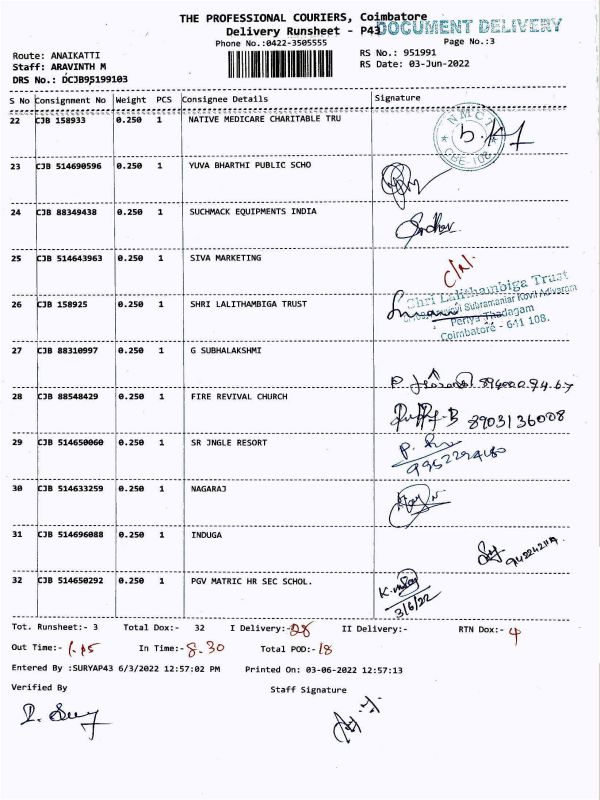 THE PROFESSIONAL COURIERS, Coimbatore
Delivery Runsheet - P43
DOCUMENT DELIVERY
Phone No.:0422-3505555
Page No.:3
Route: ANAIKATTI
RS No.: 951991
Staff: ARAVINTH M
RS Date: 03-Jun-2022
DRS No.: DCJB95199103
S No Consignment No Weight PCS Consignee Details Signature
22 CJB 158933 0.250 1 NATIVE MEDICARE CHARITABLE TRU
NMCT
CBE-108
23 CJB 514690596 0.250 1 YUVA BHARTHI PUBLIC SCHO
24 CJB 88349438 0.250 1 SUCHMACK EQUIPMENTS INDIA
25 CJB 514643963 0.250 1 SIVA MARKETING
26 CJB 158925 0.250 1 SHRI LALITHAMBIGA TRUST
Shri Lalithambiga Trust
Subramaniar Kovil Adivaram
Periya Thadagam
Coimbatore - 641 108.
27 CJB 88310997 0.250 1 G SUBHALAKSHMI
28 CJB 88548429 0.250 1 FIRE REVIVAL CHURCH
8903136008
29 CJB 514650060 0.250 1 SR JNGLE RESORT
30 CJB 514633259 0.250 1 NAGARAJ
31 CJB 514696088 0.250 1 INDUGA
32 CJB 514650292 0.250 1 PGV MATRIC HR SEC SCHOL.
3/6/22
Tot. Runsheet:- 3 Total Dox:- 32 I Delivery:-28 II Delivery:- RTN Dox:- 4
Out Time:- 1.15 In Time:- 8.30 Total POD:- 18
Entered By :SURYAP43 6/3/2022 12:57:02 PM Printed On: 03-06-2022 12:57:13
Verified By Staff Signature